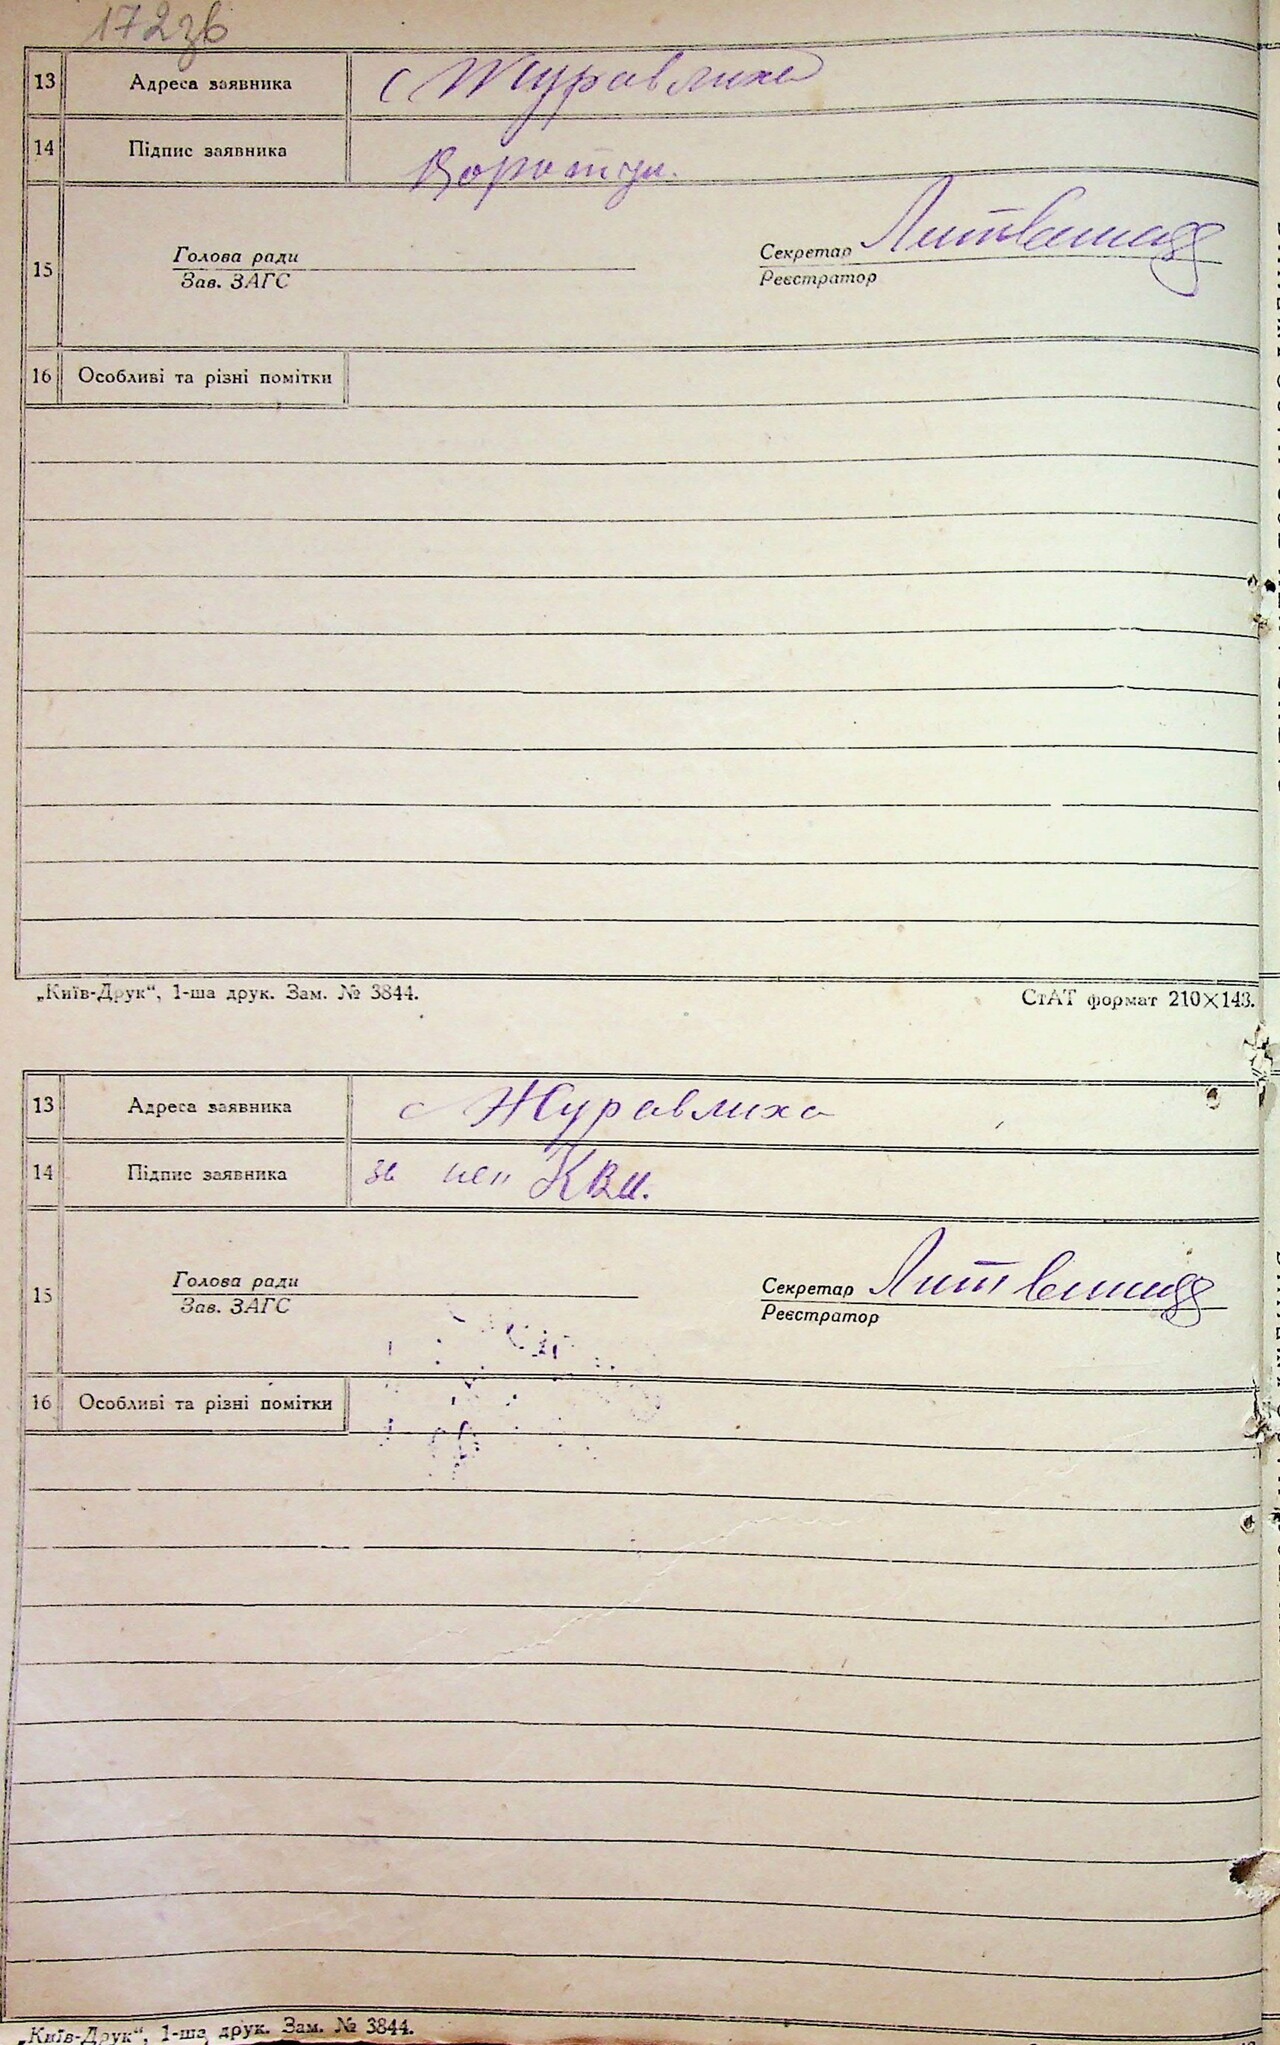 172зв
13 Адреса заявника с Журавлиха
14 Підпис заявника
15 Голова ради Секретар
Зав. ЗАГС Реєстратор
16 Особливі та різні помітки
„Київ-Друк“, 1-ша друк. Зам. № 3844. СтАТ формат 210×143.
13 Адреса заявника с Журавлиха
14 Підпис заявника
15 Голова ради Секретар
Зав. ЗАГС Реєстратор
16 Особливі та різні помітки
„Київ-Друк“, 1-ша друк. Зам. № 3844.